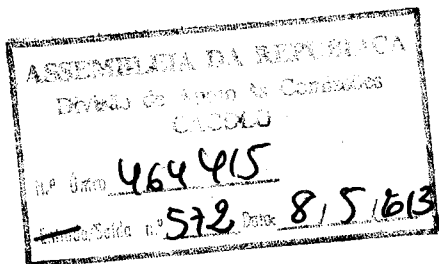 ASSEMBLEIA DA REPÚBLICA
Divisão de Apoio às Comissões
CACDLG
n.º Único 464415
Entrada/Saída n.º 572 Data: 8/5/2013